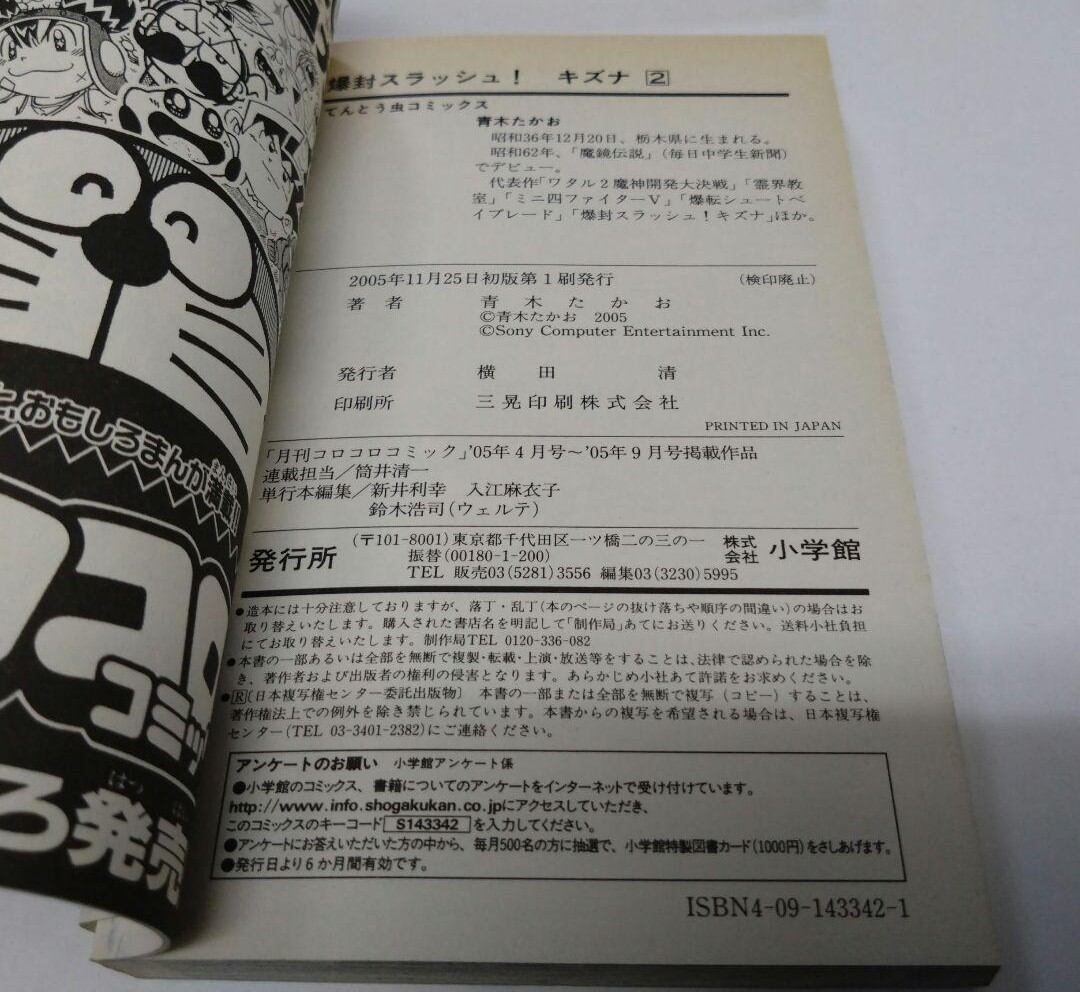 爆封スラッシュ! キズナ 2
てんとう虫コミックス
青木たかお
昭和36年12月20日、栃木県に生まれる。
昭和62年、「魔鏡伝説」(毎日中学生新聞)
でデビュー。
代表作「ワタル2魔神開発大決戦」「霊界教
室」「ミニ四ファイターV」「爆転シュートベ
イブレード」「爆封スラッシュ!キズナ」ほか。
2005年11月25日初版第1刷発行 (検印廃止)
著者 青木たかお
©青木たかお 2005
©Sony Computer Entertainment Inc.
発行者 横田 清
印刷所 三晃印刷株式会社
PRINTED IN JAPAN
「月刊コロコロコミック」'05年4月号~'05年9月号掲載作品
連載担当/筒井清一
単行本編集/新井利幸 入江麻衣子
鈴木浩司(ウェルテ)
発行所 (〒101-8001)東京都千代田区一ツ橋二の三の一 株式会社 小学館
振替(00180-1-200)
TEL 販売03(5281)3556 編集03(3230)5995
●造本には十分注意しておりますが、落丁・乱丁(本のページの抜け落ちや順序の間違い)の場合はお
取り替えいたします。購入された書店名を明記して「制作局」あてにお送りください。送料小社負担
にてお取り替えいたします。制作局TEL 0120-336-082
●本書の一部あるいは全部を無断で複製・転載・上演・放送等をすることは、法律で認められた場合を除
き、著作者および出版者の権利の侵害となります。あらかじめ小社あて許諾をお求めください。
●R〔日本複写権センター委託出版物〕 本書の一部または全部を無断で複写(コピー)することは、
著作権法上での例外を除き禁じられています。本書からの複写を希望される場合は、日本複写権
センター(TEL 03-3401-2382)にご連絡ください。
アンケートのお願い 小学館アンケート係
●小学館のコミックス、書籍についてのアンケートをインターネットで受け付けています。
http://www.info.shogakukan.co.jpにアクセスしていただき、
このコミックスのキーコード S143342 を入力してください。
●アンケートにお答えいただいた方の中から、毎月500名の方に抽選で、小学館特製図書カード(1000円)をさしあげます。
●発行日より6か月間有効です。
ISBN4-09-143342-1
と、おもしろまんが満載!!
コロ
コミッ
ろ発売